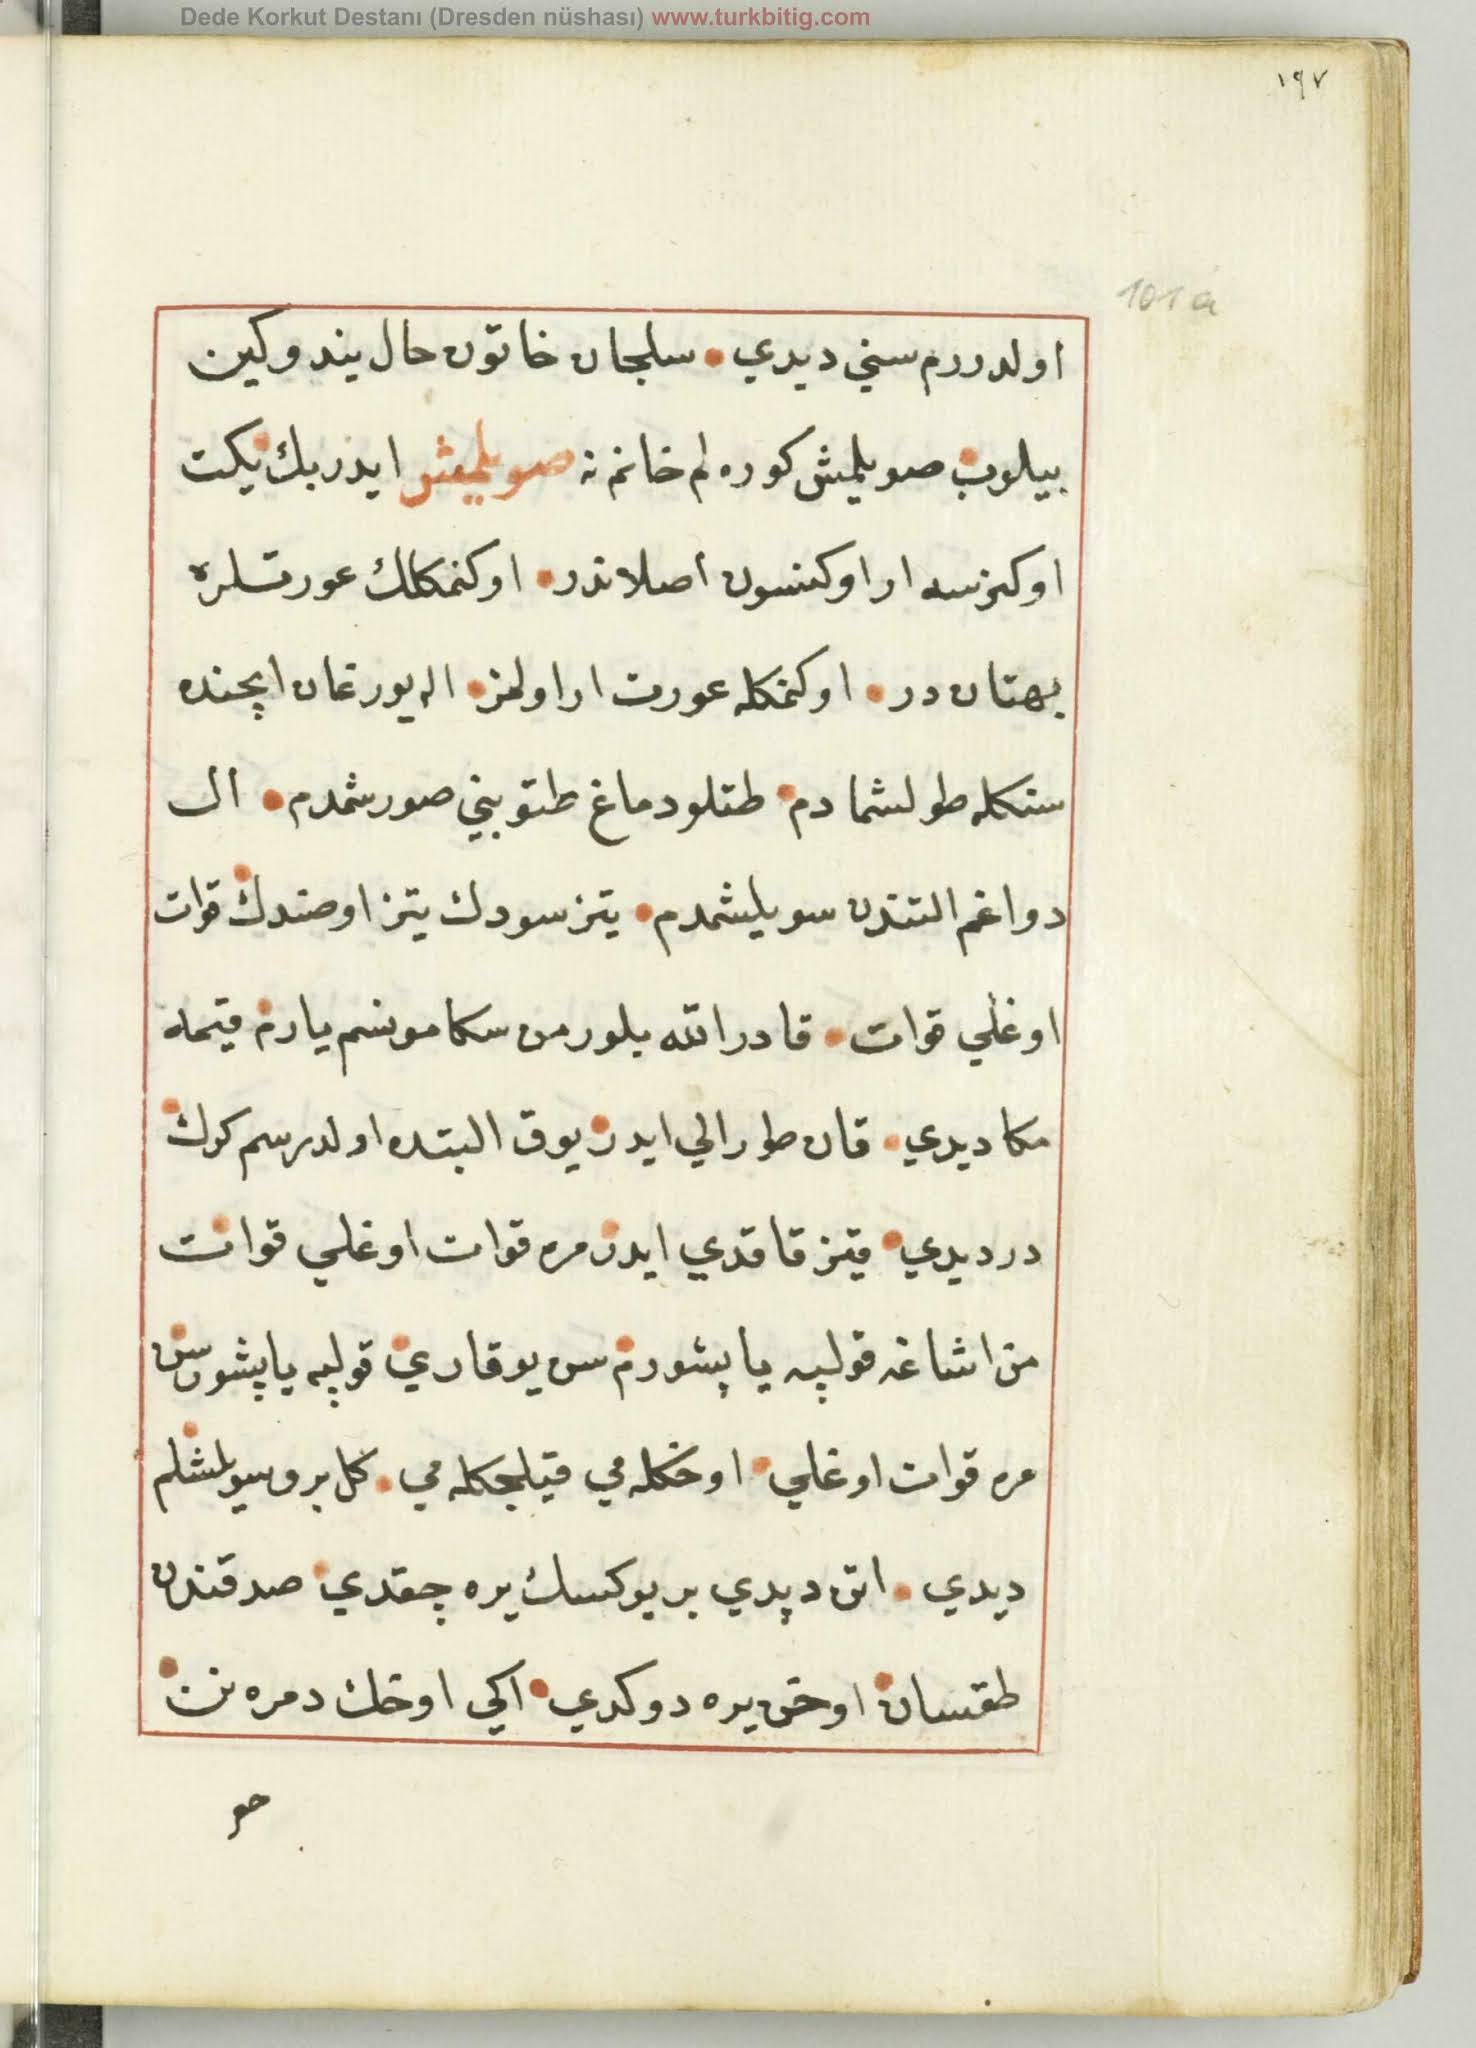 Dede Korkut Destanı (Dresden nüshası) www.turkbitig.com
١٩٧
101a
اولدررم سنى ديدي • سلجان خاتون حال يندوكين
بيلوب صويلمش كوره لم خانم نه صويلمش ايدر بك يكت
اوكنرسه ار اوكنسون اصلاندر • اوكنمكلك عورتلره
بهتان در • اوكنمكله عورت ار اولمز • اله يورغان ايچنده
سنكله طولشمادم طتلو دماغ طتوبني صورشمدم • ال
دواغم التندن سويلشمدم • يتز سودك يتز اوصندك قوات
اوغلي قوات • قادر الله بلور من سكا مونسم يارم قيمه
مكا ديدي • قان طورالي ايدر يوق البته اولدرسم كرك
در ديدي • قيز قاقدي ايدر مره قوات اوغلي قوات
من اشاغه قولپه ياپشورم سن يوقاري قولپه ياپشورسن
مره قوات اوغلي • اوخكله مي قيلجكله مي • كل برو سويلشلم
ديدي • اتن دپدي بر يوكسك يره چقدي صدقندن
طقسان اوخن يره دوكدي • اكي اوخك دمره نن